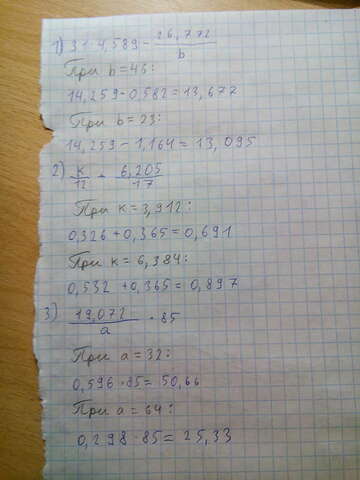 1) 31·4,589 - 26,772 / b
При b=46:
14,259-0,582=13,677
При b=23:
14,259-1,164=13,095
2) к/12 + 6,205/17
При к=3,912:
0,326+0,365=0,691
При к=6,384:
0,532 +0,365=0,897
3) 19,072/a · 85
При a=32:
0,596·85=50,66
При a=64:
0,298·85=25,33